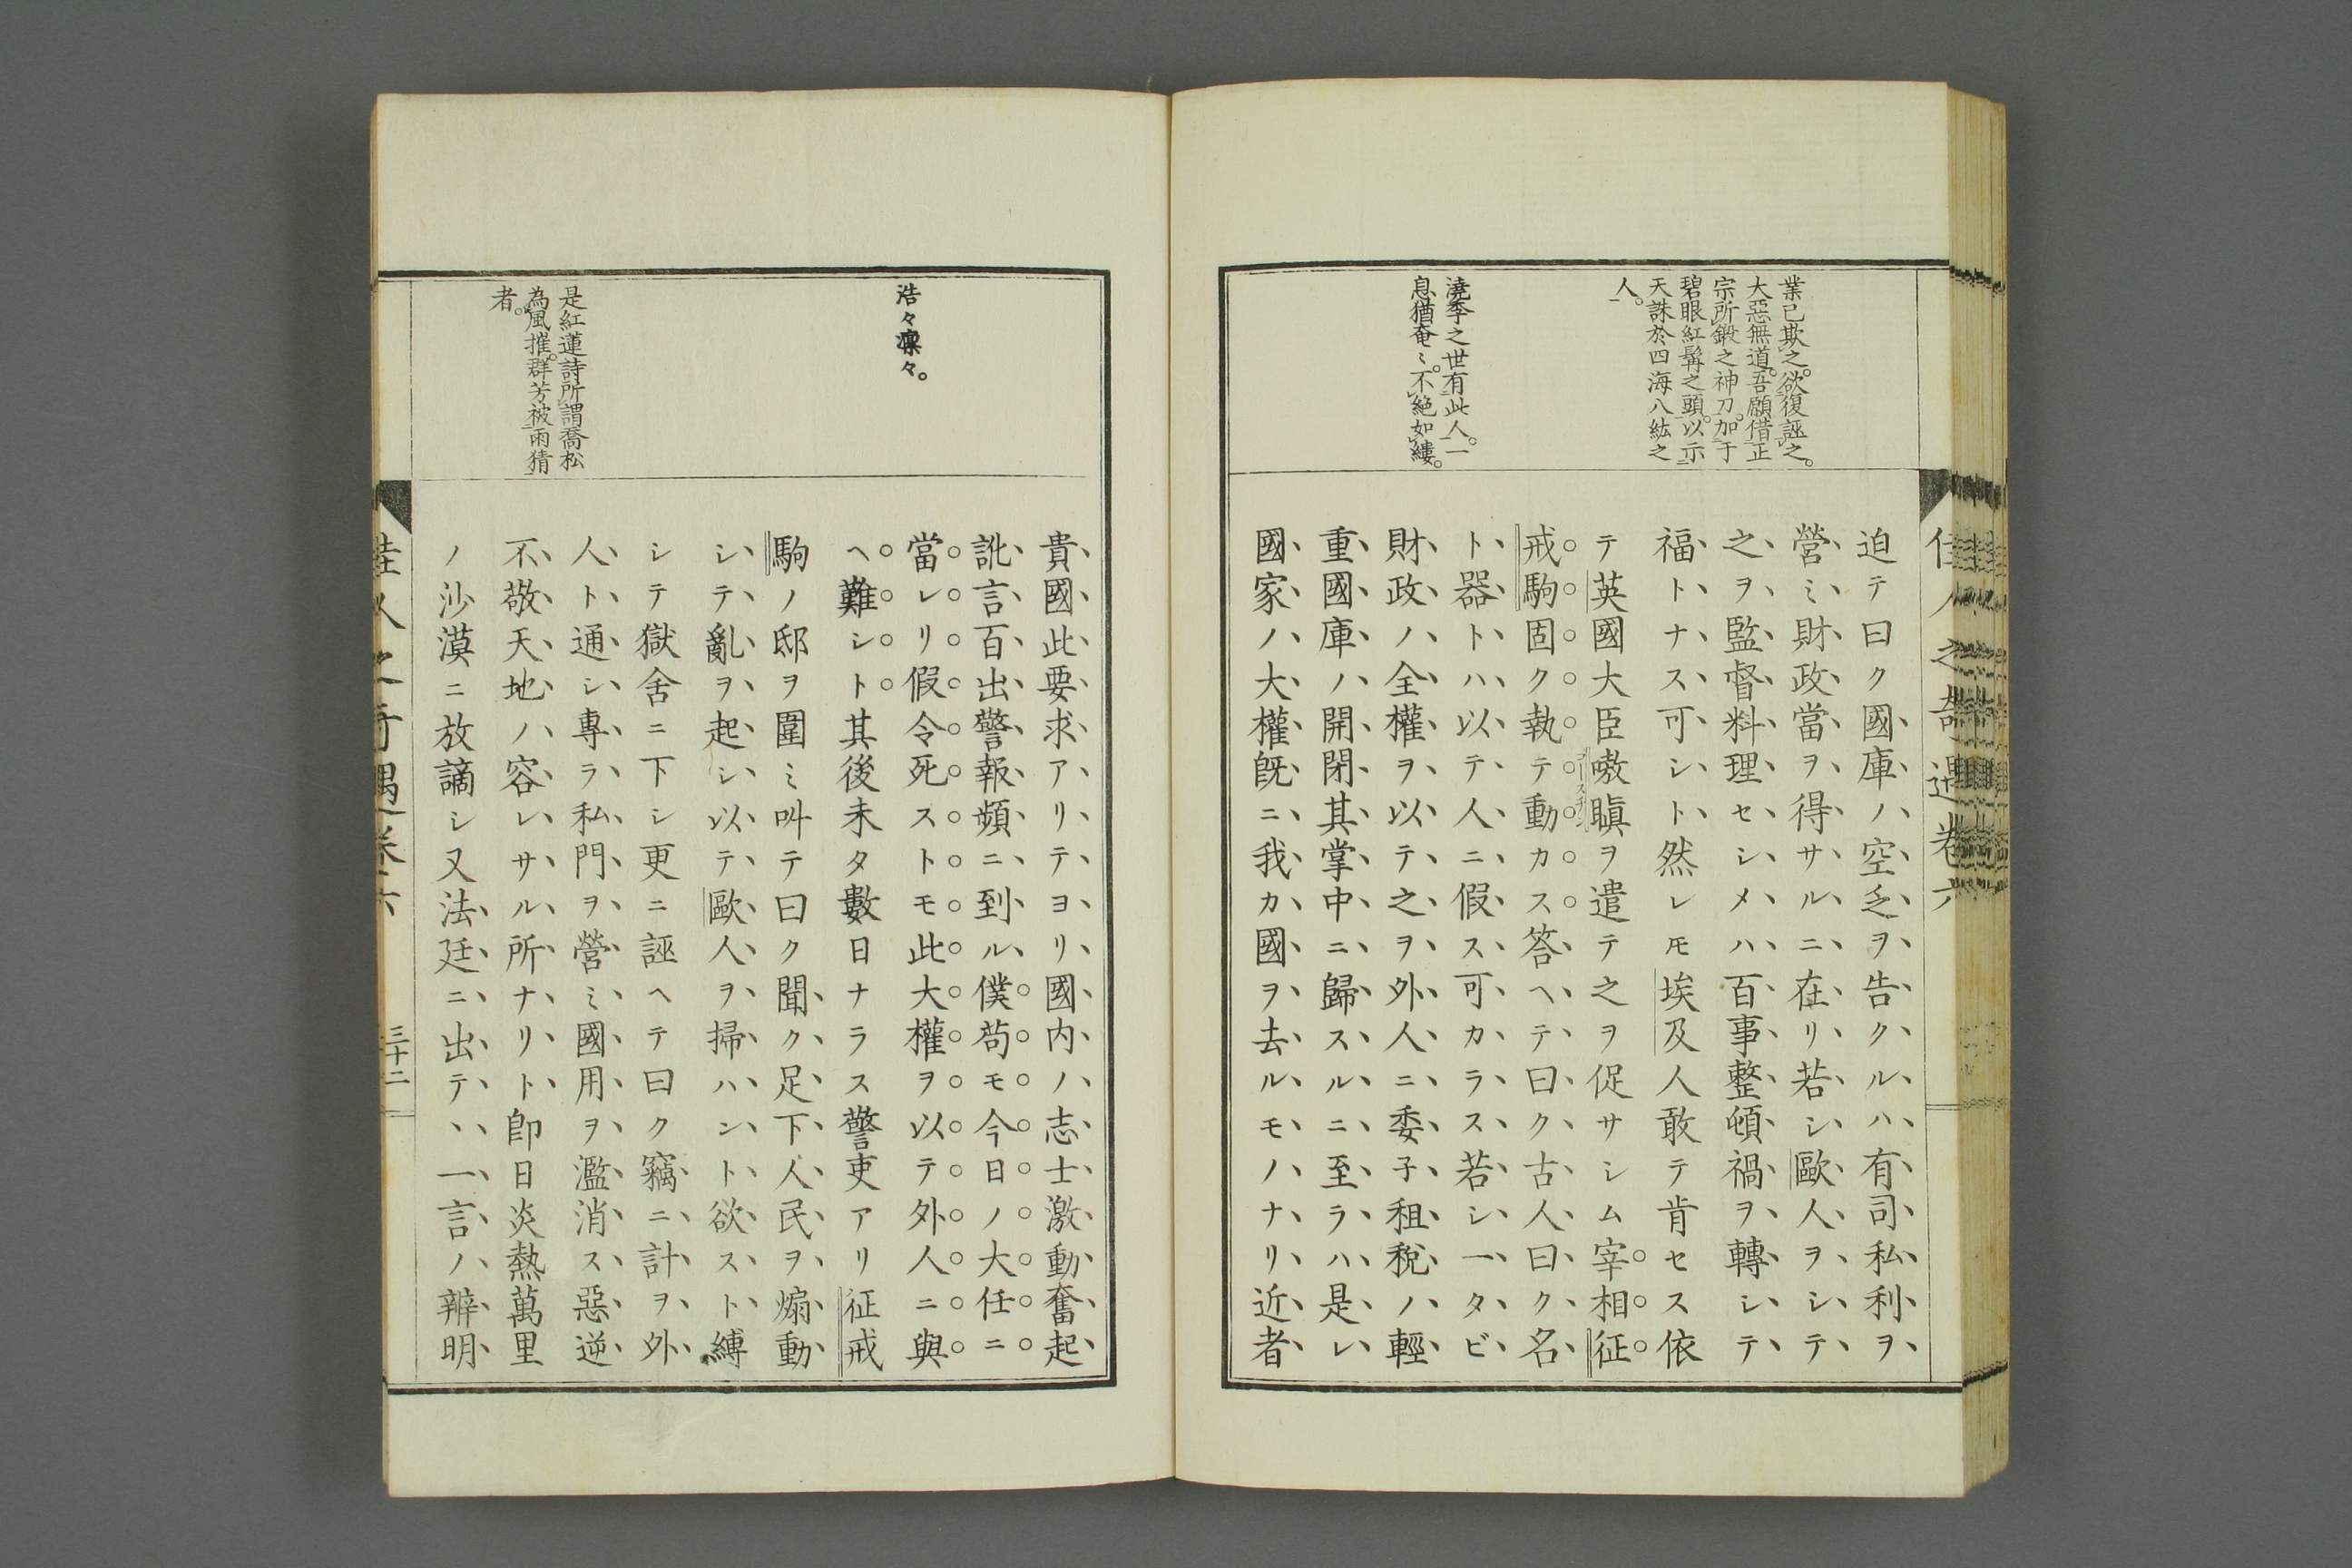 業已欺之。欲復誣之。
大惡無道。吾願借正
宗所鍛之神刀。加于
碧眼紅髯之頭。以示
天誅於四海八紘之
人。
澆季之世有此人。一
息猶奄〻。不絕如縷。
迫テ曰ク國庫ノ空乏ヲ告クルハ有司私利ヲ
營ミ財政當ヲ得サルニ在リ若シ歐人ヲシテ
之ヲ監督料理セシメハ百事整頓禍ヲ轉シテ
福トナス可シト然レ𪜈埃及人敢テ肯セス依
テ英國大臣嗷瞋ヲ遣テ之ヲ促サシム宰相征
ゴースチン
戒駒固ク執テ動カス答ヘテ曰ク古人曰ク名
ト器トハ以テ人ニ假ス可カラス若シ一タビ
財政ノ全權ヲ以テ之ヲ外人ニ委子租稅ノ輕
重國庫ノ開閉其掌中ニ歸スルニ至ラハ是レ
國家ノ大權既ニ我カ國ヲ去ルモノナリ近者
佳人之奇遇卷六
浩々凜々。
是紅蓮詩所謂喬松
為風摧。群芳被雨猜
者。
貴國此要求アリテヨリ國内ノ志士激動奮起
訛言百出警報頻ニ到ル僕苟モ今日ノ大任ニ
當レリ假令死ストモ此大權ヲ以テ外人ニ與
ヘ難シト其後未タ數日ナラス警吏アリ征戒
駒ノ邸ヲ圍ミ叫テ曰ク聞ク足下人民ヲ煽動
シテ亂ヲ起シ以テ歐人ヲ掃ハント欲スト縛
シテ獄舍ニ下シ更ニ誣ヘテ曰ク竊ニ計ヲ外
人ト通シ專ラ私門ヲ營ミ國用ヲ濫消ス惡逆
不敬天地ノ容レサル所ナリト卽日炎熱萬里
ノ沙漠ニ放謫シ又法廷ニ出テヽ一言ノ辨明
佳人之奇遇卷六
三十二